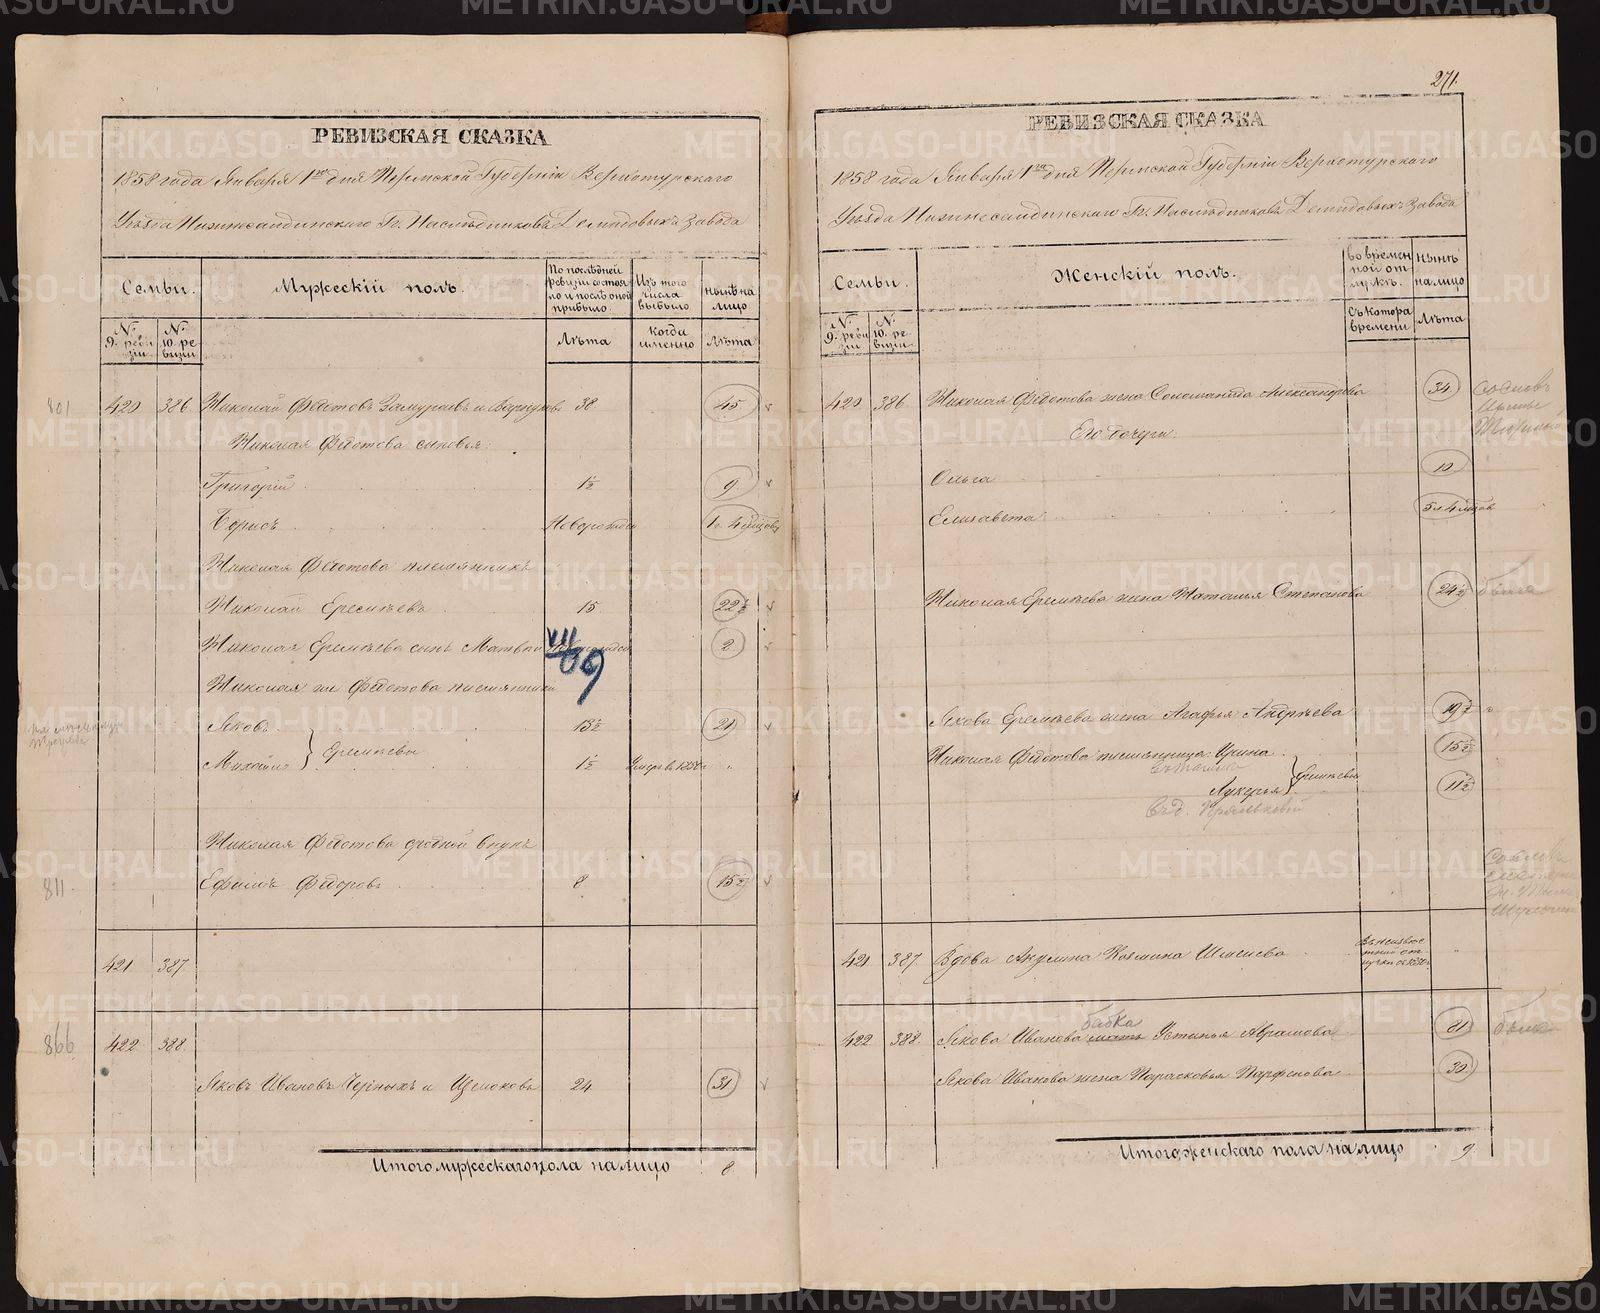 РЕВИЗСКАЯ СКАЗКА
1858 года Января 1го дня Пермской Губернiи Верхотурскаго
Уѣзда Нижнесалдинскаго Гг. Наслѣдниковъ Демидовыхъ Завода
Семьи.
Мужескiй полъ.
По послѣдней ревизiи состояло и послѣ оной прибыло
Изъ того числа выбыло
Нынѣ на лицо
№ 9. ревизiи
№ 10. ревизiи
Лѣта
когда именно
Лѣта
801 420 386 Николай Федотовъ 38 45
Николая Федотова сыновья:
Григорiй 1½ 9
Борисъ
Николая Федотова племянникъ
Николай Еремѣевъ 15 22½
Николая Еремѣева сынъ Матвѣй 2
VII/09
Николая же Федотова племянники
Яковъ 13½ 21
Михайло } Еремѣевы 1½ Умеръ в 1850 г
Николая Федотова сродной внукъ
811 Ефимъ Федоровъ 8 15½
421 387
866 422 388
Яковъ Ивановъ Черныхъ и Щелоковъ 24 31
Итого мужескаго пола на лицо 8
271.
РЕВИЗСКАЯ СКАЗКА
1858 года Января 1го дня Пермской Губернiи Верхотурскаго
Уѣзда Нижнесалдинскаго Гг. Наслѣдниковъ Демидовыхъ Завода
Семьи.
Женскiй полъ.
Во временной отлучкѣ.
Нынѣ на лицо
№ 9. ревизiи
№ 10. ревизiи
Съ котора времени
Лѣта
420 386 Николая Федотова жена Соломанида Александрова 34
Его дочери
Ольга 10
Елизавета
Николая Еремѣева жена Наталья Степанова 24½
Якова Еремѣева жена Агафья Андрѣева 19½
Николая Федотова племянница Ирина 15½
Лукерья } Еремѣевы 11½
421 387. Вдова Акулина Козмина
422 388. Якова Иванова мать бабка Устинья Аврамова 81
Якова Иванова жена Парасковья Парфенова 30
Итого женскаго пола на лицо 9.
METRIKI.GASO-URAL.RU